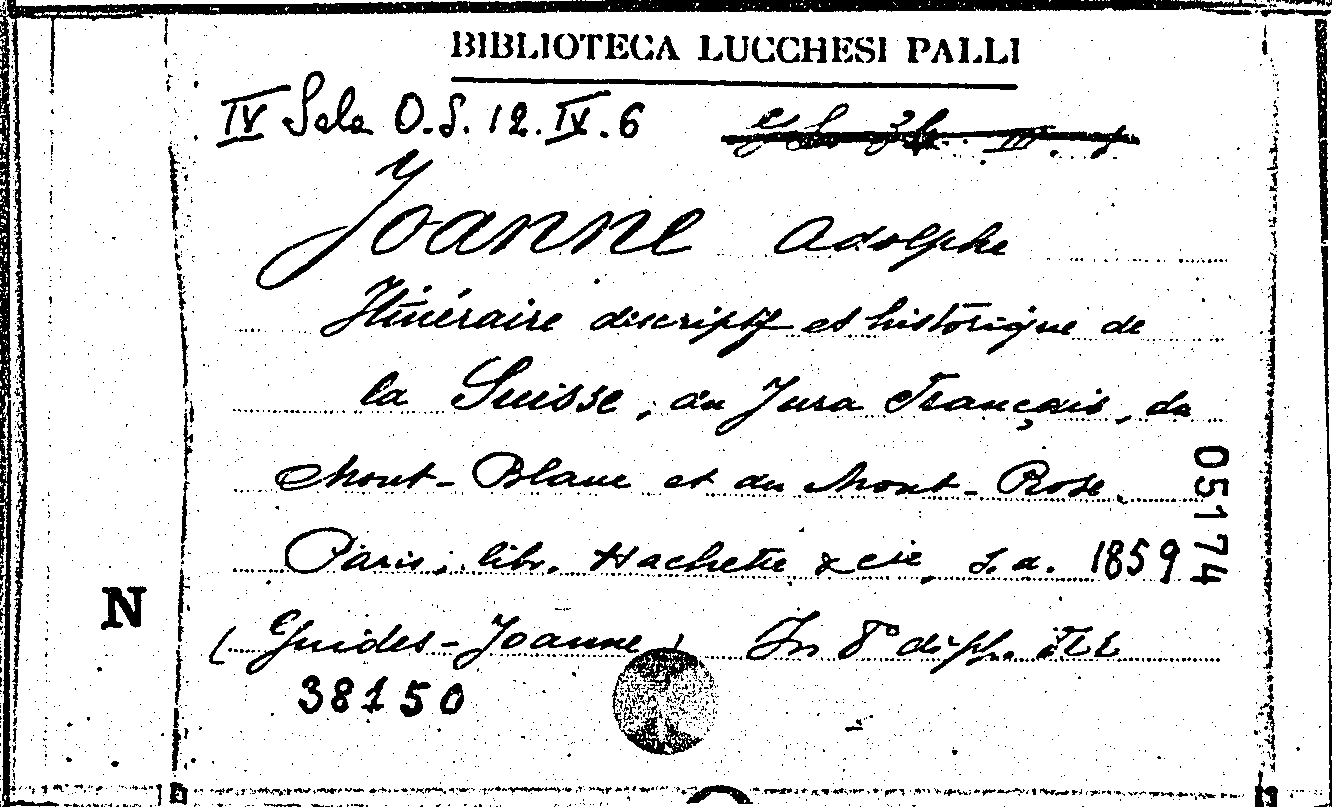 BIBLIOTECA LUCCHESI PALLI
IV Sala O.S. 12. IX. 6
Joanne Adolphe
Itinéraire discriptif et historique de
la Suisse, du Jura Français, du
Mont-Blanc et du Mont-Rose.
Paris, libr. Hachette & cie, s.a. 1859
(Guides-Joanne) In 8° di pp.
38150
05174
N